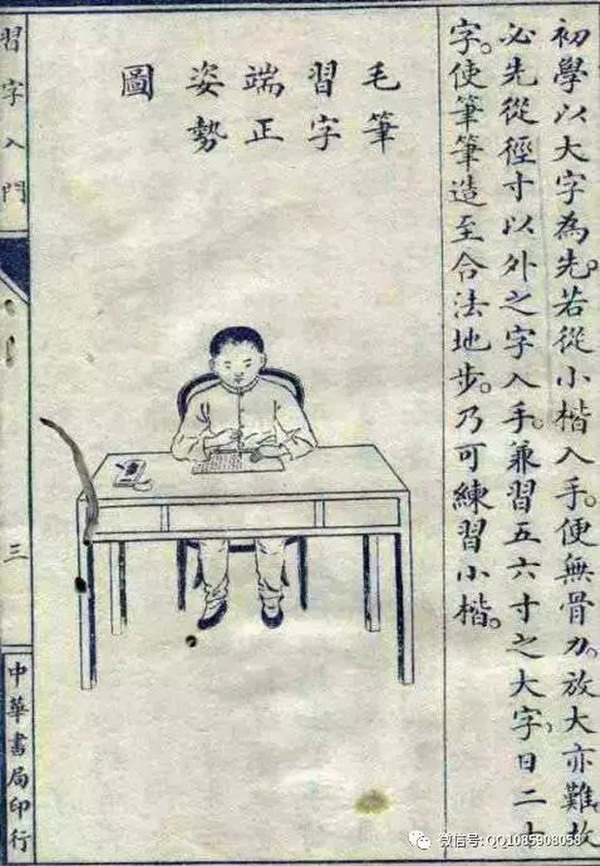 初學以大字為先。若從小楷入手。便無骨力。放大亦難。故
必先從徑寸以外之字入手。兼習五六寸之大字，日二十
字。使筆筆造至合法地步。乃可練習小楷。
毛筆
習字
端正
姿勢
圖
習字入門
三
中華書局印行
微信号: QQ1085908058